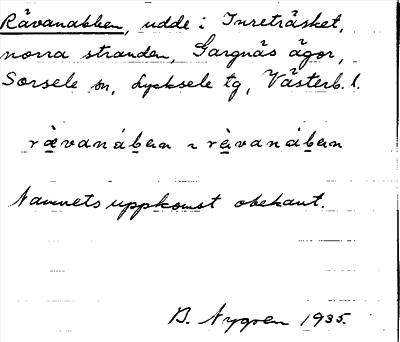 Råvanabben, udde i Inreträsket,
norra stranden, Gargnäs ägor,
Sorsele sn, Lycksele tg, Västerb. l.
rævanáben ~ rävanáben
Namnets uppkomst obekant.
B. Nygren 1935.